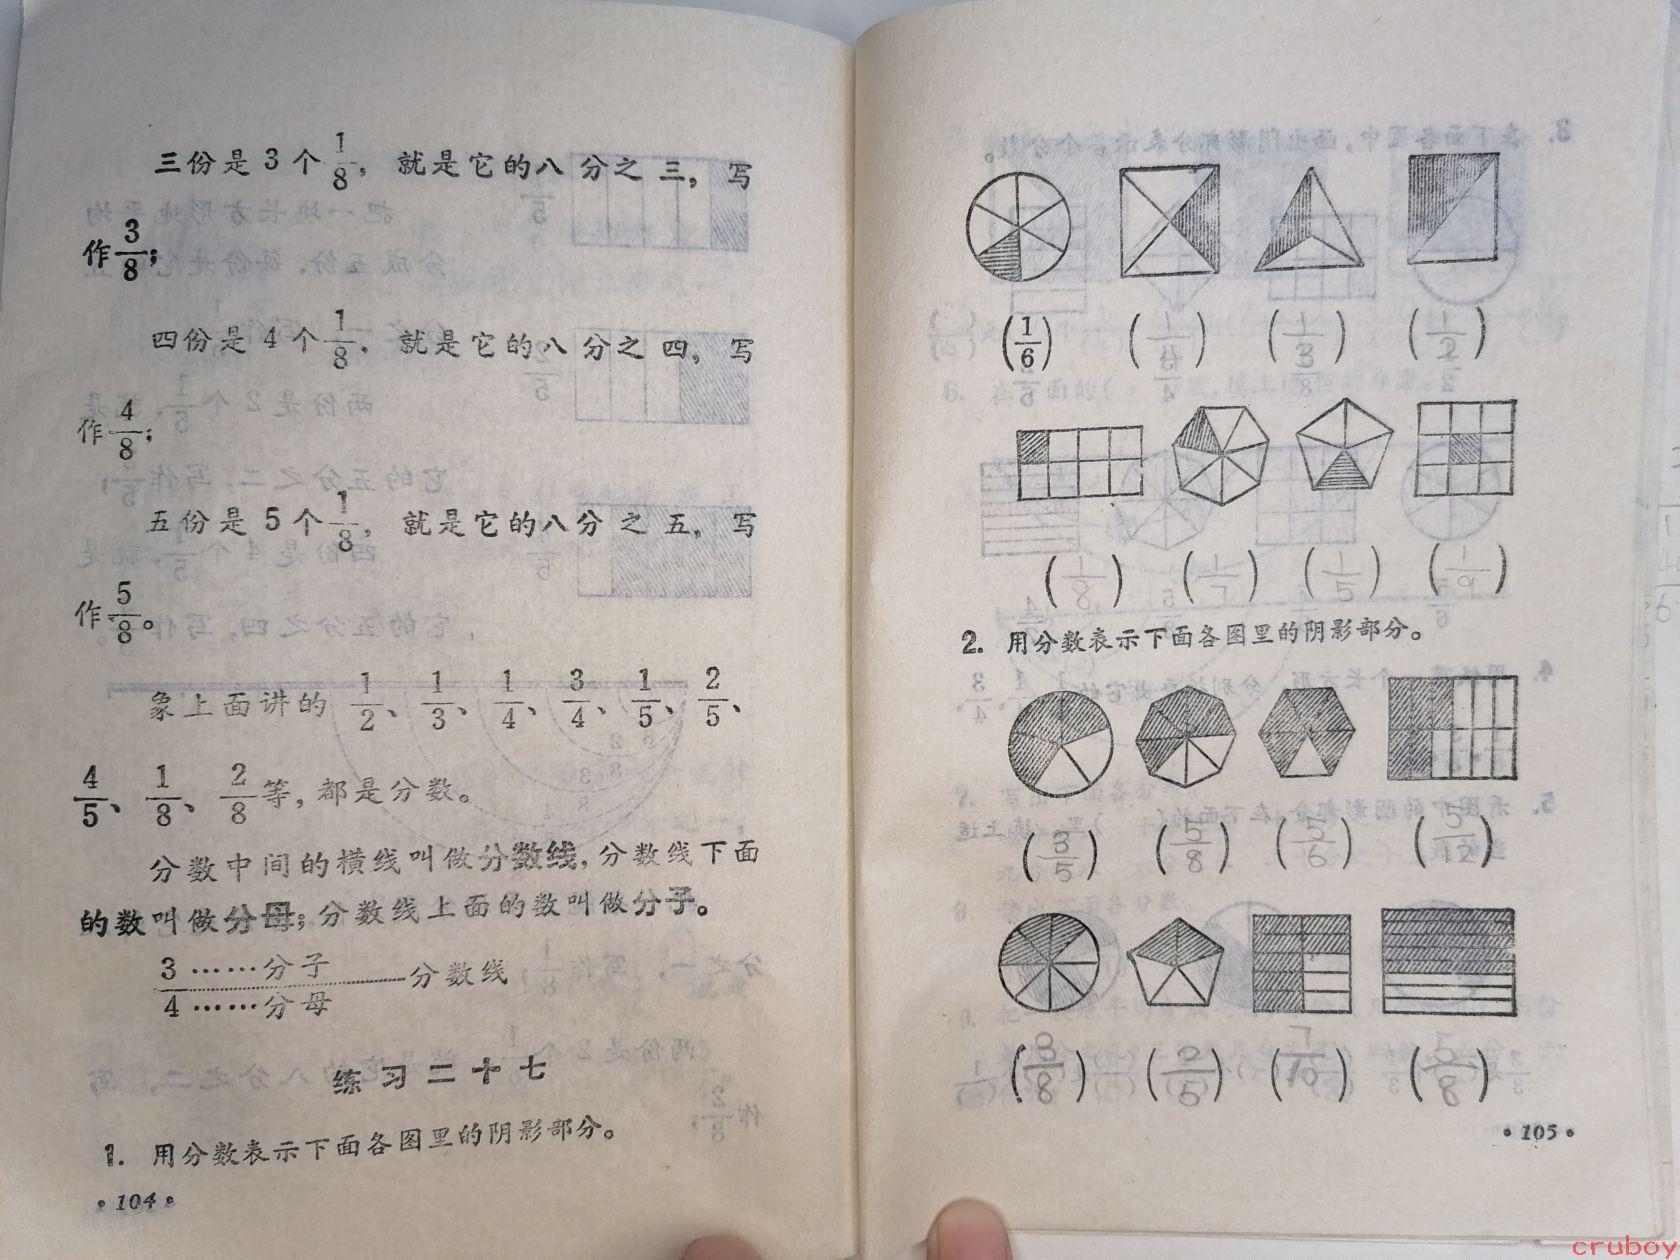 三份是3个1/8，就是它的八分之三，写
作3/8；
四份是4个1/8，就是它的八分之四，写
作4/8；
五份是5个1/8，就是它的八分之五，写
作5/8。
象上面讲的1/2、1/3、1/4、3/4、1/5、2/5、
4/5、1/8、2/8等，都是分数。
分数中间的横线叫做分数线，分数线下面
的数叫做分母；分数线上面的数叫做分子。
3……分子
……分数线
4……分母
练习二十七
1. 用分数表示下面各图里的阴影部分。
·104·
(1/6) (1/4) (1/3) (1/2)
(1/8) (1/7) (1/5) (1/9)
2. 用分数表示下面各图里的阴影部分。
(3/5) (5/8) (5/6) (5/12)
(3/8) (2/5) (7/10) (5/8)
·105·
cruboy